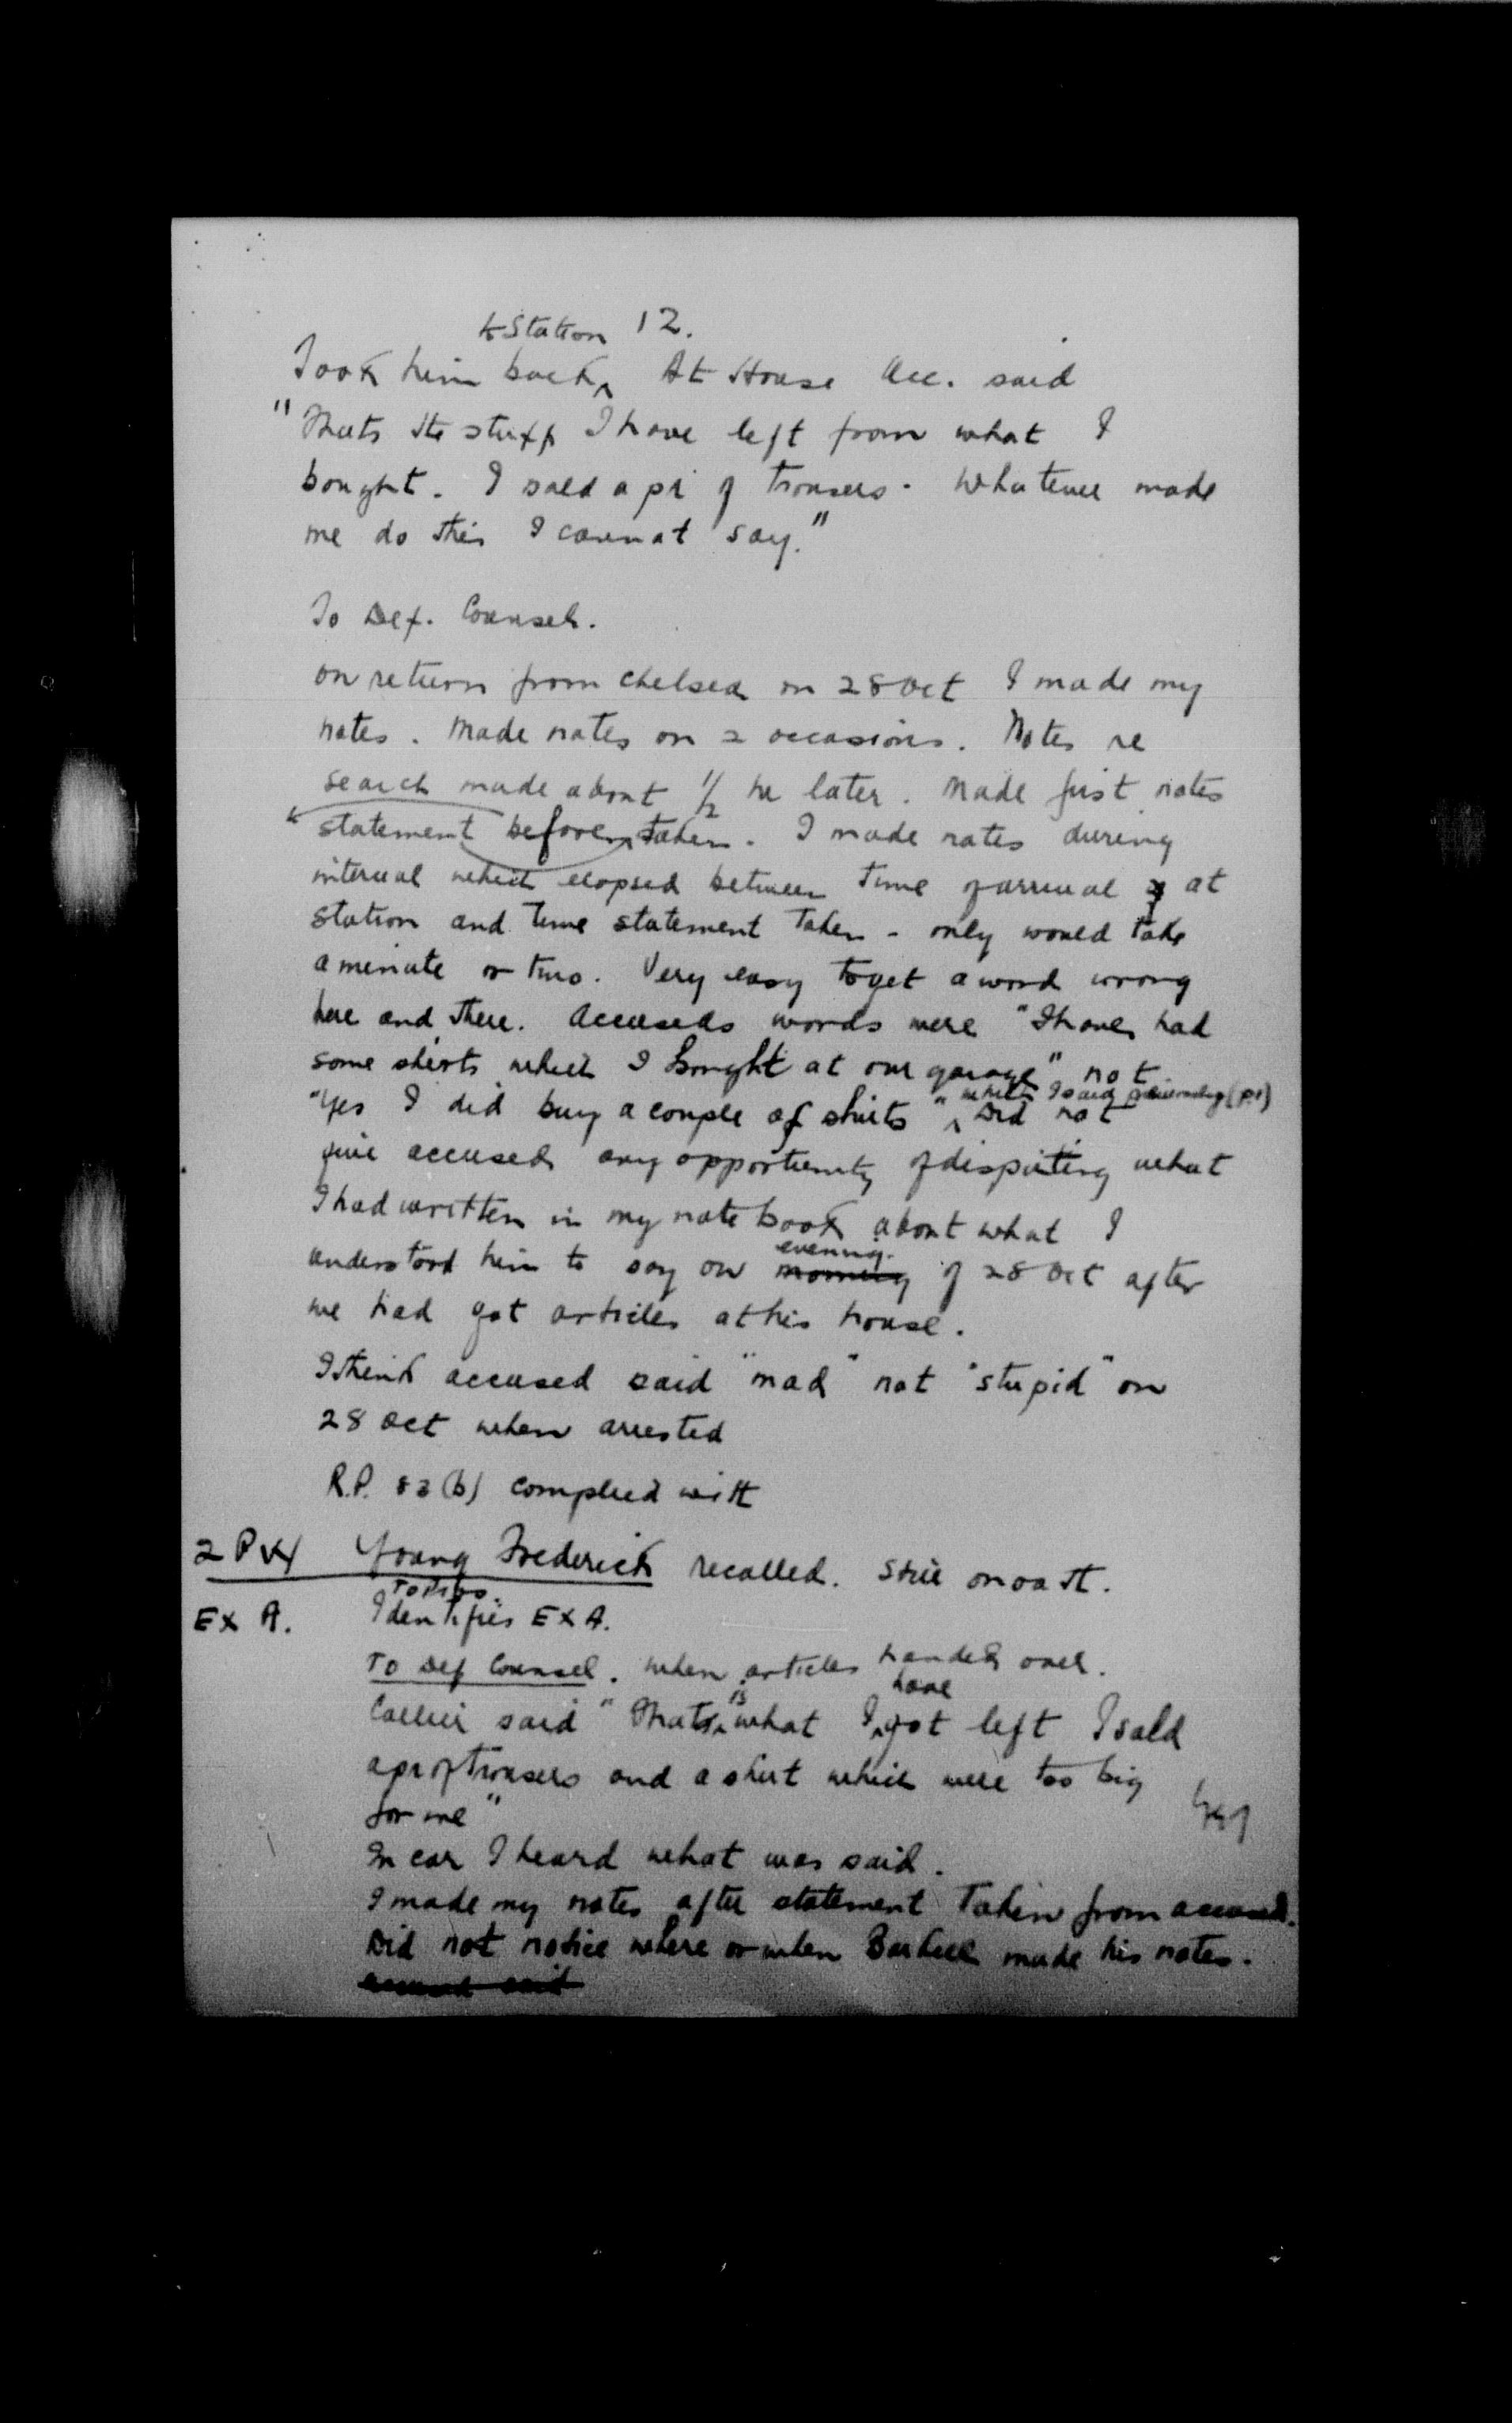 to Station 12.
Took him back ^ At House Acc. said
"Thats the stuff I have left from what I
bought. I sold a pr of trousers. Whatever made
me do this I cannot say."
To Def. Counsel.
On return from Chelsea on 28 Oct I made my
notes. Made notes on 2 occasions. Notes re
search made about 1/2 hr later. Made first notes
statement before taken. I made notes during
interval which elapsed between time of arrival at
station and time statement taken - only would take
a minute or two. Very easy to get a word wrong
here and there. Accuseds words were "I have had
some shirts which I bought at our garage" not
"Yes I did buy a couple of shirts" ^ which I said previously (p.1) Did not
give accused any opportunity of disputing what
I had written in my note book about what I
understood him to say on morning evening of 28 Oct after
we had got articles at his house.
I think accused said "mad" not "stupid" on
28 Oct when arrested
R.P. 83 (b) complied with
2 PW Young Frederick recalled. Still on oath.
To Pros.
Ex A. Identifies Ex A.
To Def Counsel. When articles handed over.
Collier said "Thats ^ is what I ^ have got left I sold
a pr of trousers and a shirt which were too big
for me"
In car I heard what was said.
I made my notes after statement taken from accused.
Did not notice where or when made his notes.
accused said